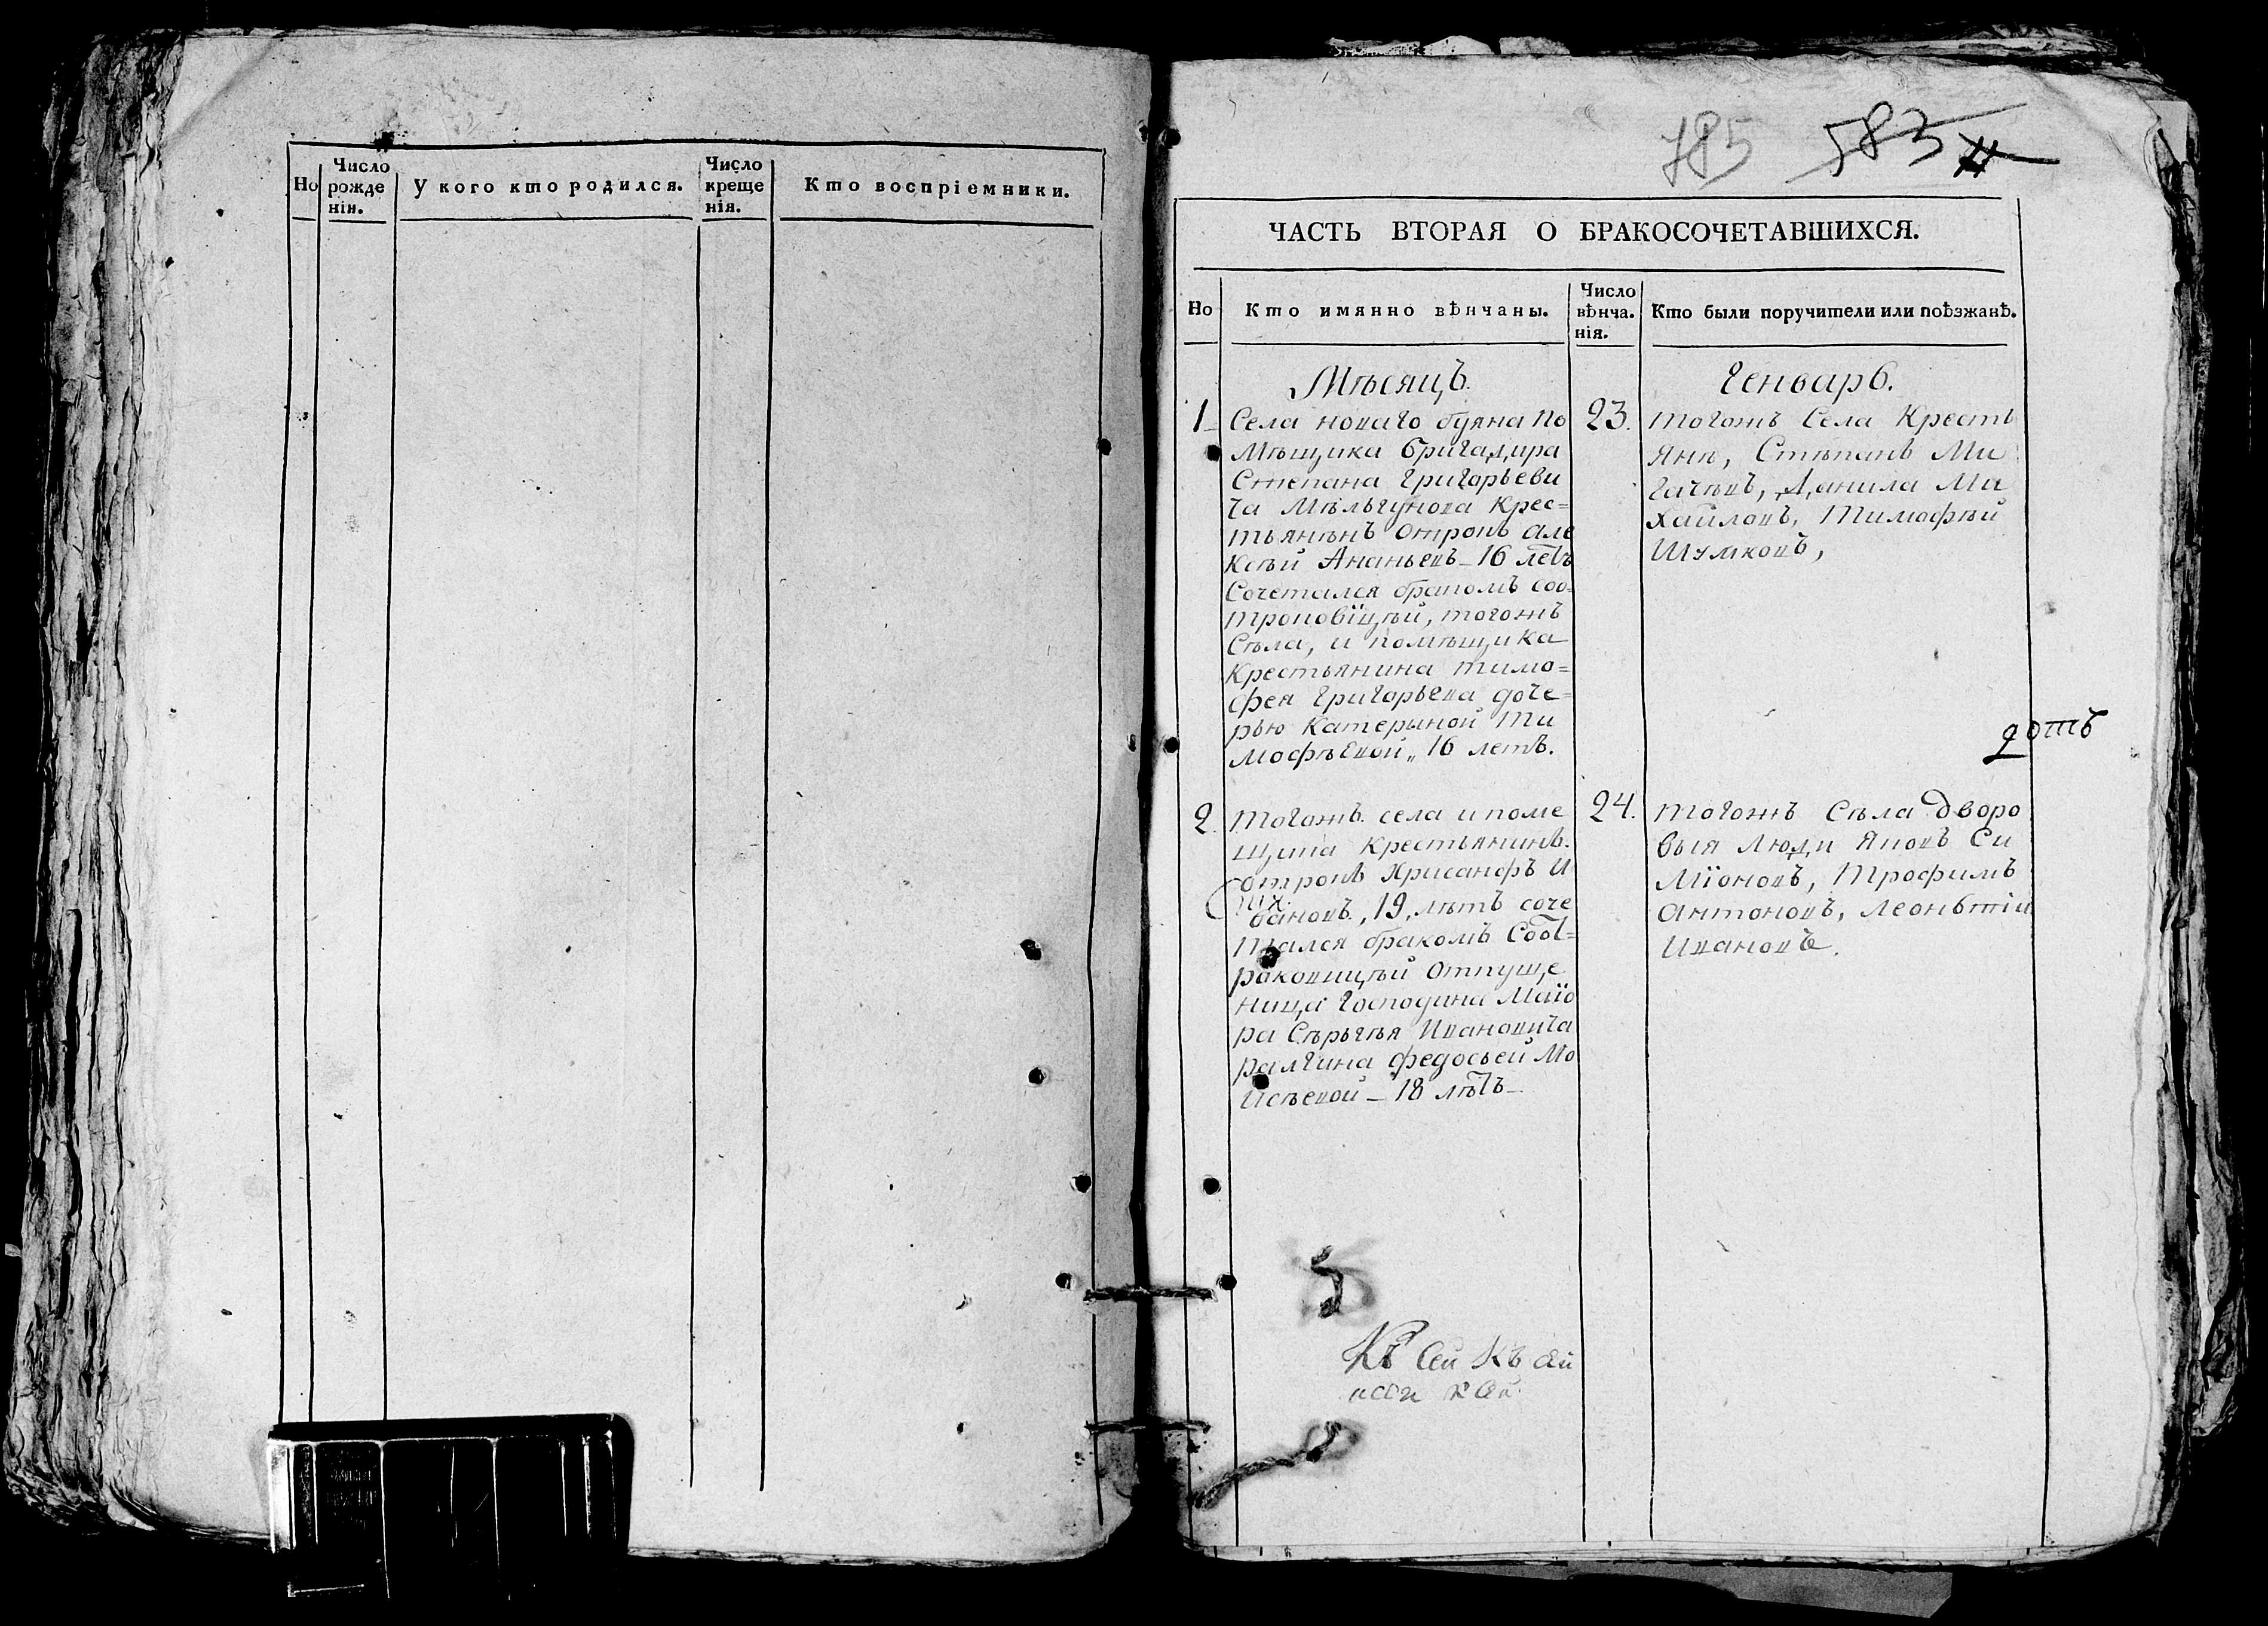 Но
Число рожденіи.
У кого кто родился.
Число крещенія.
Кто воспріемники.
785 583
ЧАСТЬ ВТОРАЯ О БРАКОСОЧЕТАВШИХСЯ.
Но
Кто имянно вѣнчаны.
Число вѣнча.нія.
Кто были поручители или поѣзжанѣ.
Мѣсяцъ. Генварь.
1
Села новаго буяна по
мѣщика бригадира
Степана Григорьеви
ча Мѣльгунова Крес=
тьянѣнъ отрокъ але
ксѣй Ананьевъ 16 летъ
Сочетался бракомъ соо
троковицѣй, тогожъ
Сѣла, и помѣщика
Крестьянина тимо=
фея Григорьева доче=
рью Катериной Ти
мофѣевой„ 16 летъ.
23.
тогожъ Села Кресть
янѣ, Стѣпанъ Ми
гачѣвъ, Данила Ми
хайловъ, Тимофѣй
Шумковъ,
2.
Тогожъ села и поме
щика Крестьянинъ
отрокъ Хрисанфъ И
вановъ, 19, лѣтъ соче
тался бракомъ Соот=
роковицѣй отпуще
ница Господина Маіо
ра Сѣрьгѣя Ивановича
ралгина федосьей Мо
исѣевой – 18 лѣтъ –
24.
тогожъ Сѣла дворо
выя люди Яковъ Си
міоновъ, Трофимъ
антоновъ, леонътіи
Ивановъ.
Къ сей Къ сей